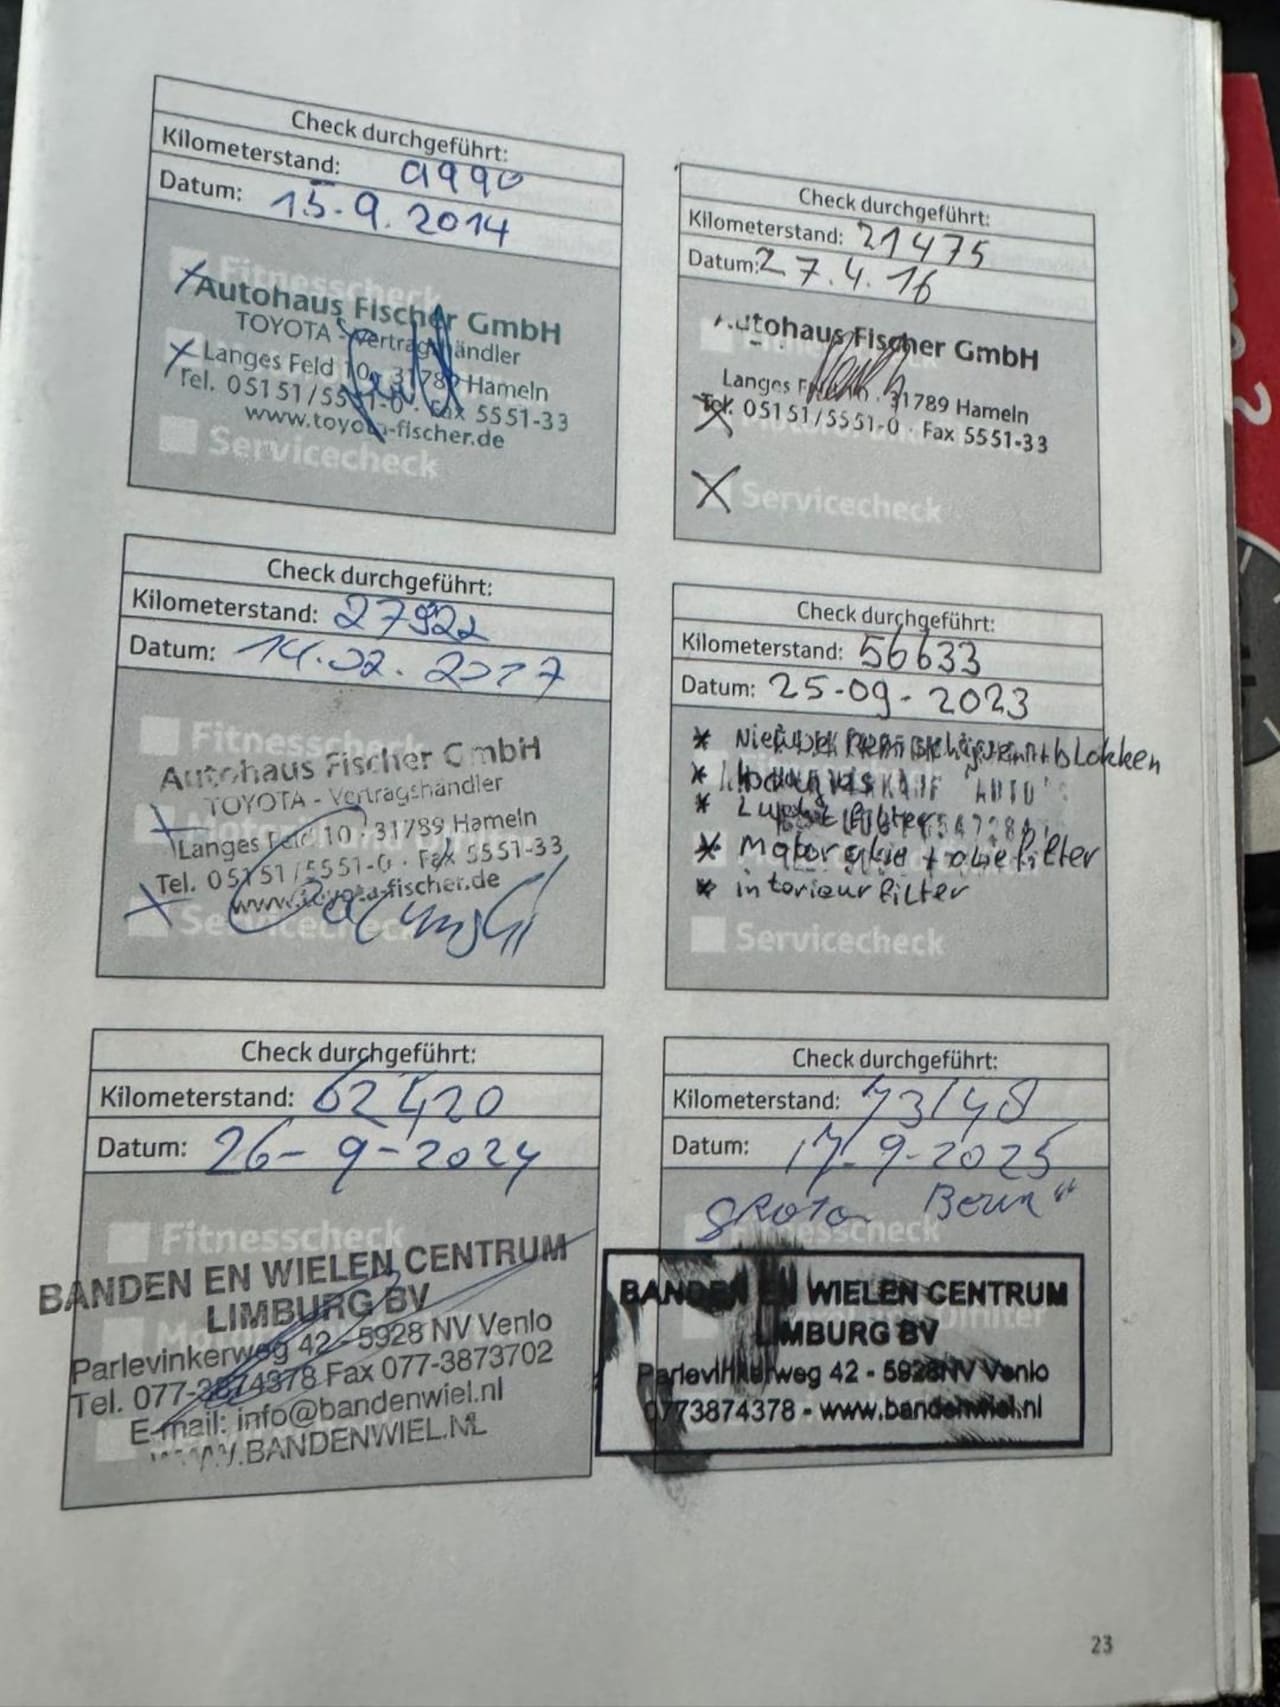 Check durchgeführt:
Kilometerstand: 9990
Datum: 15.9.2014
Fitnesscheck
Autohaus Fischer GmbH
TOYOTA - Vertragshändler
Langes Feld 10 · 31789 Hameln
Tel. 05151/5551-0 · Fax 5551-33
www.toyota-fischer.de
Servicecheck
Check durchgeführt:
Kilometerstand: 21475
Datum: 27.4.16
Autohaus Fischer GmbH
Langes Feld 10 · 31789 Hameln
Tel. 05151/5551-0 · Fax 5551-33
Servicecheck
Check durchgeführt:
Kilometerstand: 27922
Datum: 14.02.2017
Fitnesscheck
Autohaus Fischer GmbH
TOYOTA - Vertragshändler
Langes Feld 10 · 31789 Hameln
Tel. 05151/5551-0 · Fax 5551-33
www.toyota-fischer.de
Servicecheck
Check durchgeführt:
Kilometerstand: 56633
Datum: 25-09-2023
* blokken
* Luchtfilter
* Motor olie + oliefilter
* intorieur filter
Servicecheck
Check durchgeführt:
Kilometerstand: 62420
Datum: 26-9-2024
Fitnesscheck
BANDEN EN WIELEN CENTRUM
LIMBURG BV
Parlevinkerweg 42 - 5928 NV Venlo
Tel. 077-3874378 Fax 077-3873702
E-mail: info@bandenwiel.nl
WWW.BANDENWIEL.NL
Check durchgeführt:
Kilometerstand: 73148
Datum: 17-9-2025
Fitnesscheck
BANDEN EN WIELEN CENTRUM
LIMBURG BV
Parlevinkerweg 42 - 5928NV Venlo
0773874378 - www.bandenwiel.nl
23